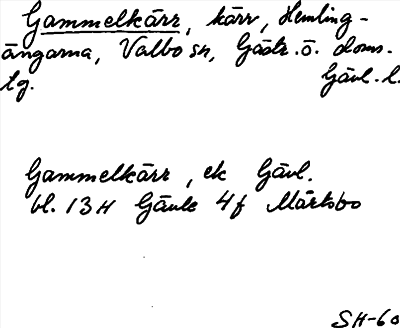 Gammelkärr, kärr, Hemling-
ängarna, Valbo sn, Gästr. ö. doms.
tg. Gävl. l.
Gammelkärr, ek Gävl.
bl. 13 H Gävle 4f Mårtsbo
SH-60